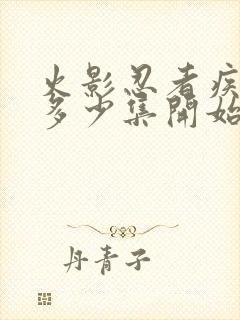 火影忍者疾
多少集開始
丹青子